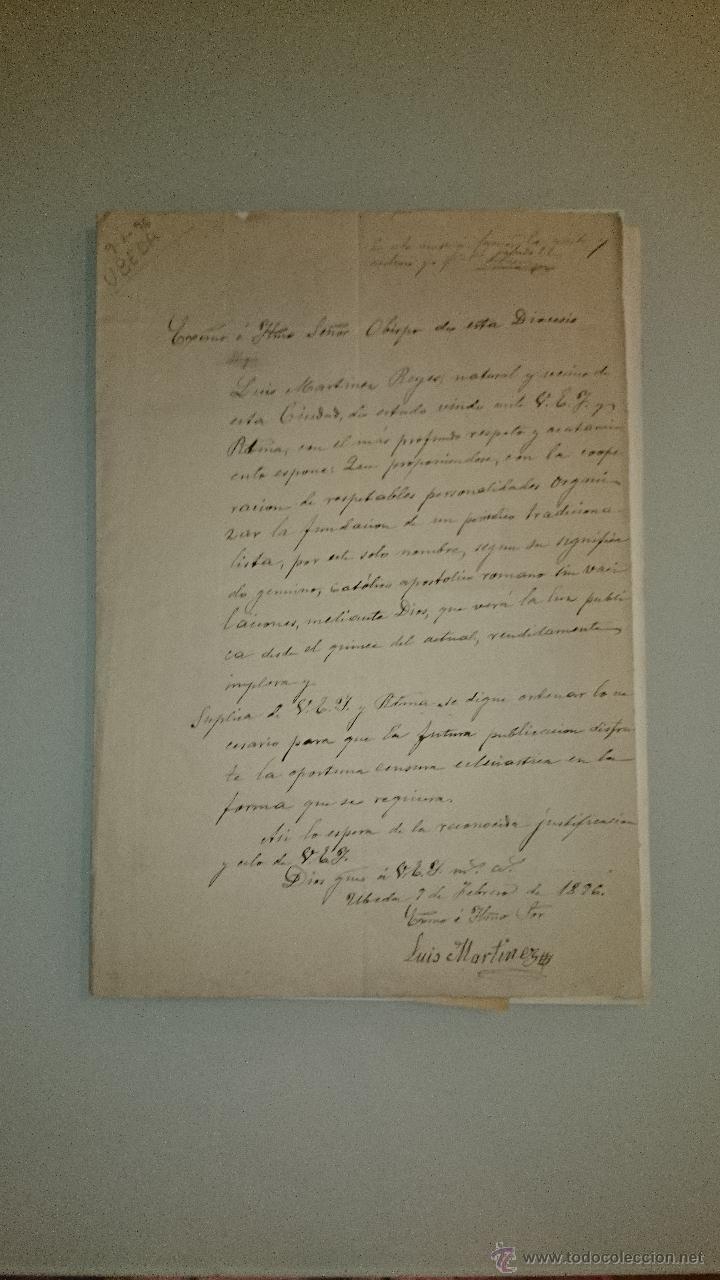 UBEDA
Excmo é Iltmo Señor Obispo de esta Diocesis
Luis Martinez Reyes, natural y vecino de
esta Ciudad, de estado viudo ante V.E.I. y
Rtma, con el más profundo respeto y acatami
ento espone: Que proponiendose, con la coope
racion de respetables personalidades organi
zar la fundacion de un periodico tradiciona
lista, por este solo nombre, segun su significa
do genuino, católico apostolico romano sin vaci
laciones, mediante Dios, que verá la luz publi
ca desde el quince del actual, rendidamente
implora y
Suplica de V.E.I. y Rtma se digne ordenar lo ne
cesario para que la futura publicacion disfru
te la oportuna censura eclesiastica en la
forma que se requiera.
Asi lo espera de la reconocida justificacion
y celo de V.E.I.
Dios gue á V.E.I. ms. as.
Ubeda 9 de Febrero de 1896.
Excmo é Iltmo Sor
Luis Martinez
www.todocoleccion.net